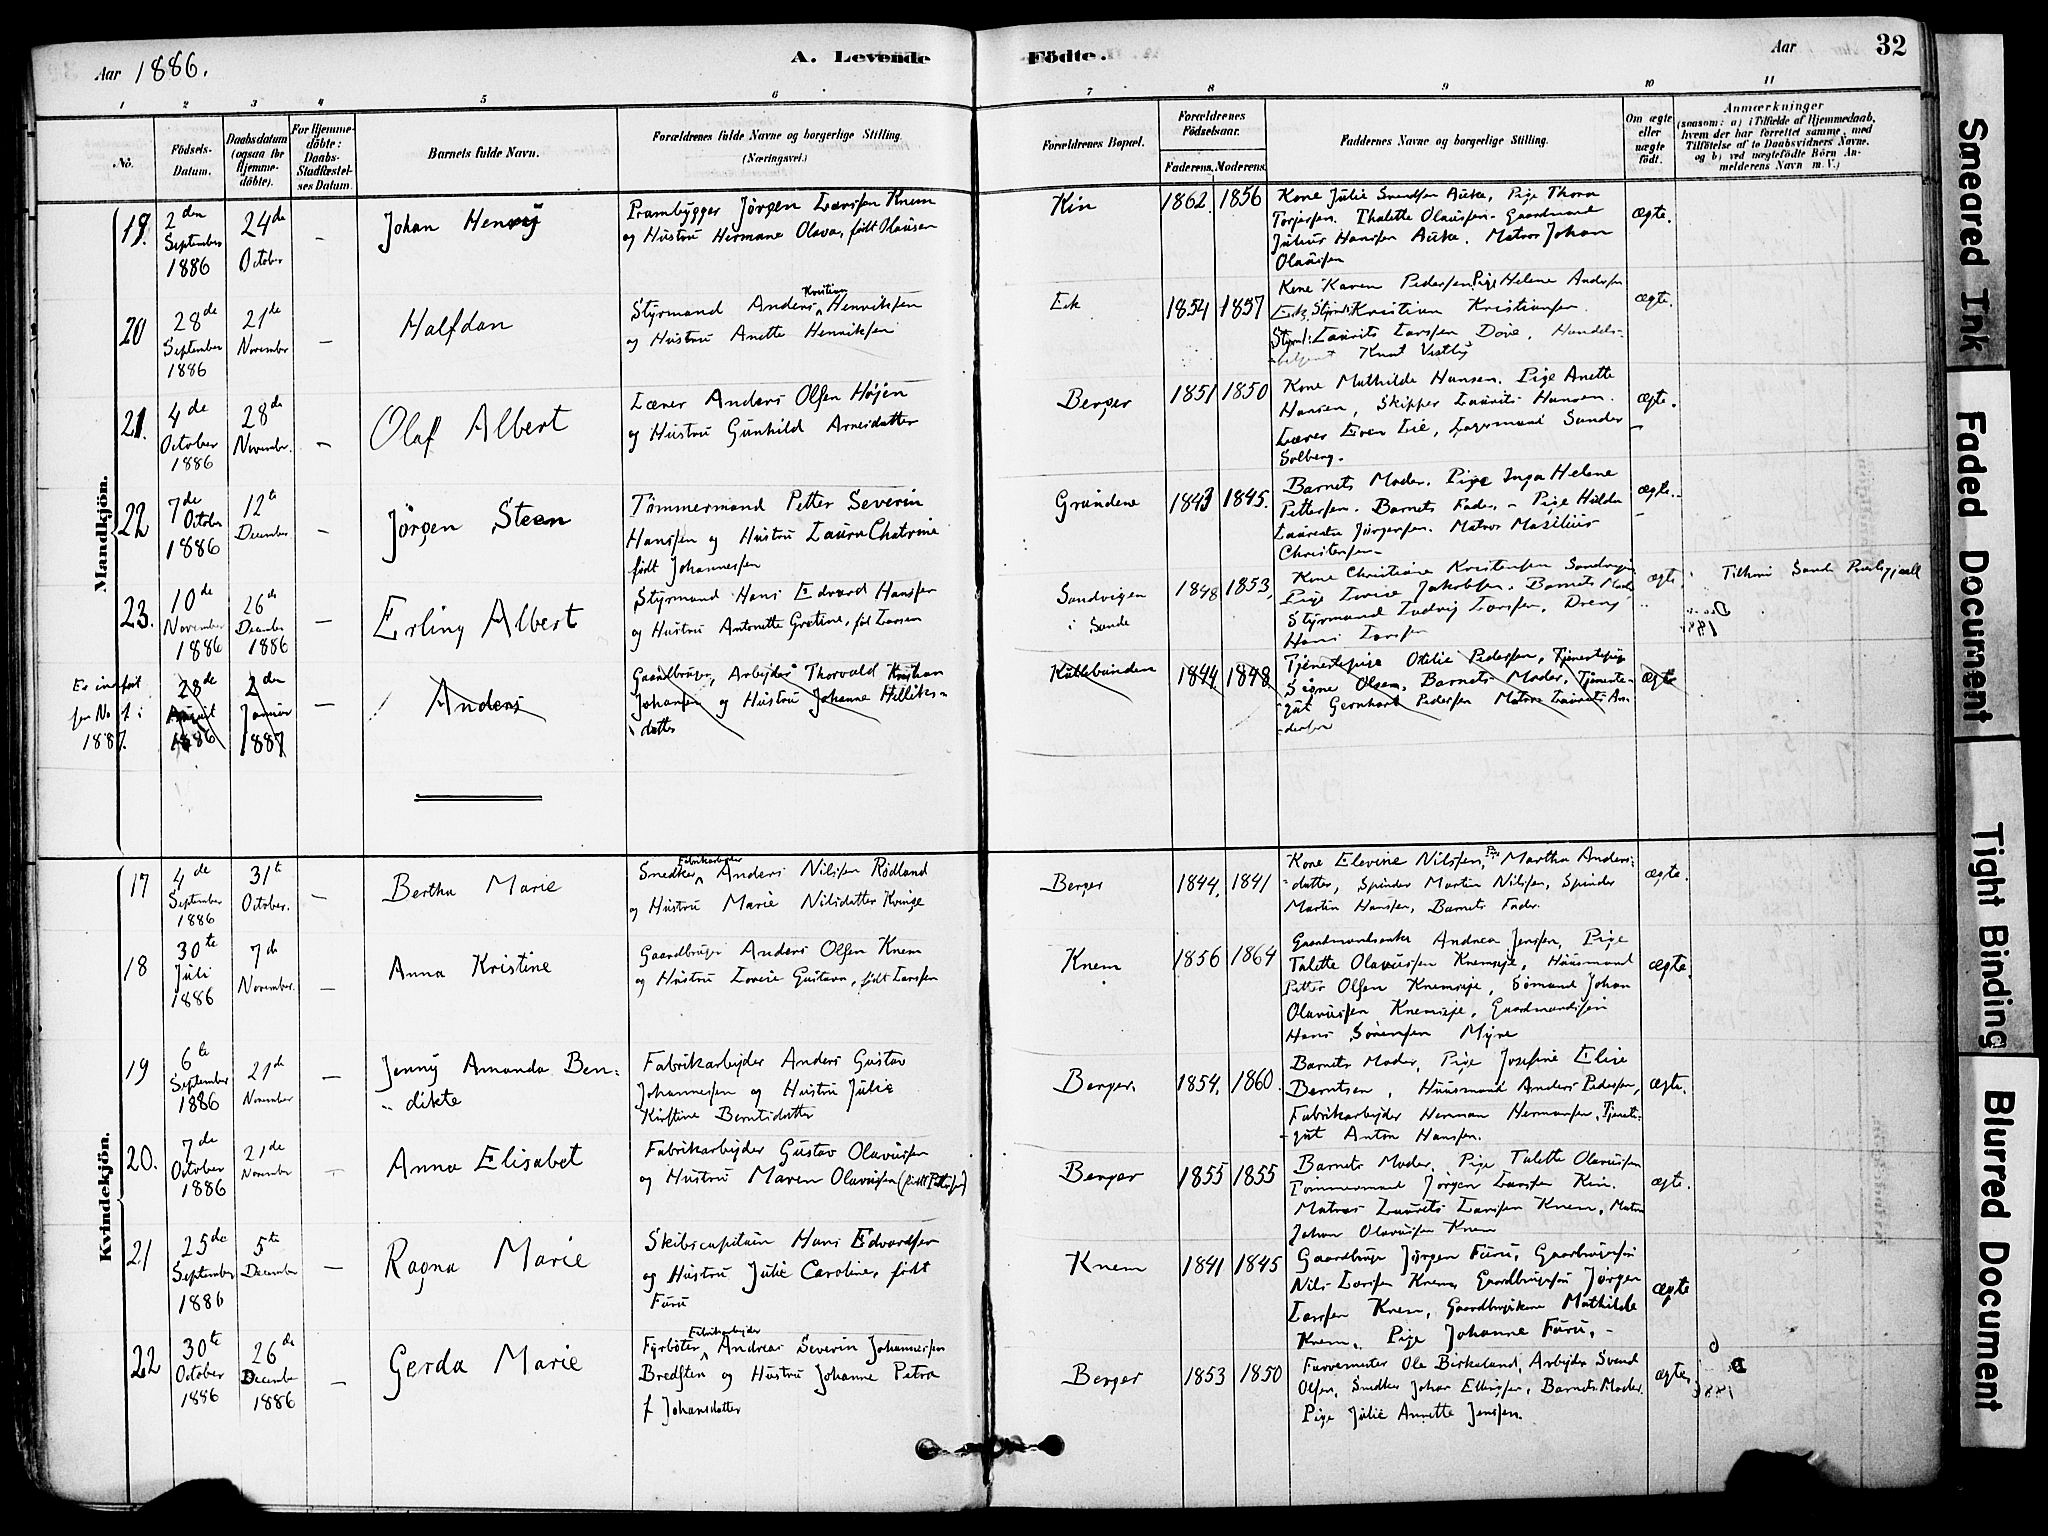 Aar 1886.
A. Levende
Födte.
Aar
32
1
2
3
4
5
6
7
8
9
10
11
No.
Födsels-
Datum.
Daabsdatum
(ogsaa for
Hjemme-
döbte).
For Hjemme-
döbte:
Daabs-
Stadfæstel-
ses Datum.
Barnets fulde Navn.
Forældrenes fulde Navne og borgerlige Stilling.
(Næringsvei.)
Forældrenes Bopæl.
Forældrenes
Födselsaar.
Faderens.
Moderens.
Faddernes Navne og borgerlige Stilling.
Om ægte
eller
uægte
født.
Anmærkninger
(saasom: a) i Tilfælde af Hjemmedaab,
hvem der har forrettet samme, med
Tilföielse af to Daabsvidners Navne,
og b) ved uægtefödte Börn An-
melderens Navn m.V.)
Mandkjön.
19.
2den
September
1886
24de
October
-
Johan Henry
Prambygger Jörgen Larssen Knem
og Hustru Hermane Olava, født Olausen
Kin
1862.
1856
Kone Julie Svendsen Auke, Pige Thora
Torjersen. Thalette Olausen- Gaardmand
Julius Hanssen Auke. Matros Johan
Olaussen
ægte.
20
28de
September
1886
21de
November
-
Halfdan
Kristian
Styrmand Anders Henriksen
og Hustru Anette Henriksen
Eik
1854
1857
Kone Karen Pedersen Pige Helene Andersen
Eik, Styrmd Kristian Kristiansen
Styrmd: Laurits Larssen Dove, Handels-
Knut Vestby
ægte.
21.
4de
October
1886
28de
November.
-
Olaf Albert
Lærer Anders Olsen Höjen
og Hustru Gunhild Arnesdatter
Berger
1851
1850
Kone Mathilde Hansen. Pige Anette
Hansen, Skipper Laurits Hansen.
Lærer Even Lie, Lagermand Sander
Solberg.
ægte.
22
7de
October
1886
12te
December
-
Jörgen Steen
Tömmermand Petter Severin
Hanssen og Hustru Laura Chatrine
født Johannessen
Grundene
1843
1845.
Barnets Moder. Pige Inga Helene
Pettersen. Barnets Fader. - Pige Hilda
Laurentse Jörgensen. Matros Maxilius
Christensen-
ægte.
23.
10de
November
1886
26de
December
1886
-
Erling Albert
Styrmand Hans Edvard Hansen
og Hustru Antonette Gretine, fød Larsen
Sandvigen
i Sande
1848
1853,
Kone Christiane Kristensen Sandvigen
Pige Lovise Jakobsen. Barnets Moder
Styrmand Ludvig Larssen, Dreng
Hans Larssen
ægte
Tilhør Sande Præstegjæld
Er indført
pr No 1 i
1887.
28de
August
1886
2den
Januar
1887
-
Anders
Gaardbruger, Arbejder Thorvald Kristian
Johansen og Hustru Johanne Helliks-
datter
Kullebunden
1844
1848
Tjenestepige Otilie Pedersen, Tjenestepige
Signe Olsen, Barnets Moder, Tjeneste-
gut Gernhart Pedersen Matros Laurits An-
dersen
ægte
Kvindekjön.
17
4de
September
1886
31te
October.
-
Bertha Marie
Fabrikarbejder
Snedker Anders Nilssen Rödland
og Hustru Marie Nilsdatter Kvinge
Berger
1844,
1841
Kone Elevine Nilssen, Pige Martha Anders-
datter, Spinder Martin Nilssen, Spinder
Martin Hanssen, Barnets Fader.
ægte.
18
30te
Juli
1886
7de
November.
-
Anna Kristine
Gaardbruger Anders Olsen Knem
og Hustru Lovise Gustava, født Larssen
Knem
1856
1864
Gaardmandsenke Andrea Jenssen, Pige
Talette Olavussen Knemseje, Huusmand
Petter Olsen Knemseje, Sömand Johan
Olavussen Knemseje, Gaardmandssön
Hans Sörensen Myre
ægte.
19
6te
September
1886
21de
November
-
Jenny Amanda Ben-
dikte
Fabrikarbejder Anders Gustav
Johannessen og Hustru Julie
Kirstine Berntsdatter
Berger.
1854,
1860.
Barnets Moder, Pige Josefine Elise
Berntsen, Huusmand Anders Pedersen,
Fabrikarbejder Herman Hermansen, Tjeneste-
gut Anton Hanssen.
ægte.
20.
7de
October
1886
21de
November
-
Anna Elisabet
Fabrikarbejder Gustav Olavussen
og Hustru Maren Olavussen (født Pettersen)
Berger
1855
1855
Barnets Moder, Pige Talette Olavussen
Tömmermand Jörgen Larssen Kin.
Matros Laurits Larssen Knem, Matros
Johan Olavussen Knem
ægte.
21
25de
September
1886
5te
December
-
Ragna Marie
Skibscapitain Hans Edvardsen
og Hustru Julie Caroline, født
Furu
Knem
1841
1845
Gaardbruger Jörgen Furu, Gaardbrugersön
Nils Larssen Knem, Gaardbrugersön Jörgen
Larssen Knem, Gaardbrugerkone Mathilde
Knem, Pige Johanne Furu.-
ægte
22
30te
October
1886
26de
December
1886
-
Gerda Marie
Fabrikarbejder
Fyrböter Andreas Severin Johannessen
Bredsten og Hustru Johanne Petra
f Johansdatter
Berger
1853
1850
Farvemester Ole Birkeland, Arbejder Svend
Olsen, Snedker Johan Ellingsen, Barnets Moder.
Pige Julie Annette Jenssen.
ægte,
Smeared Ink
Faded Document
Tight Binding
Blurred Document